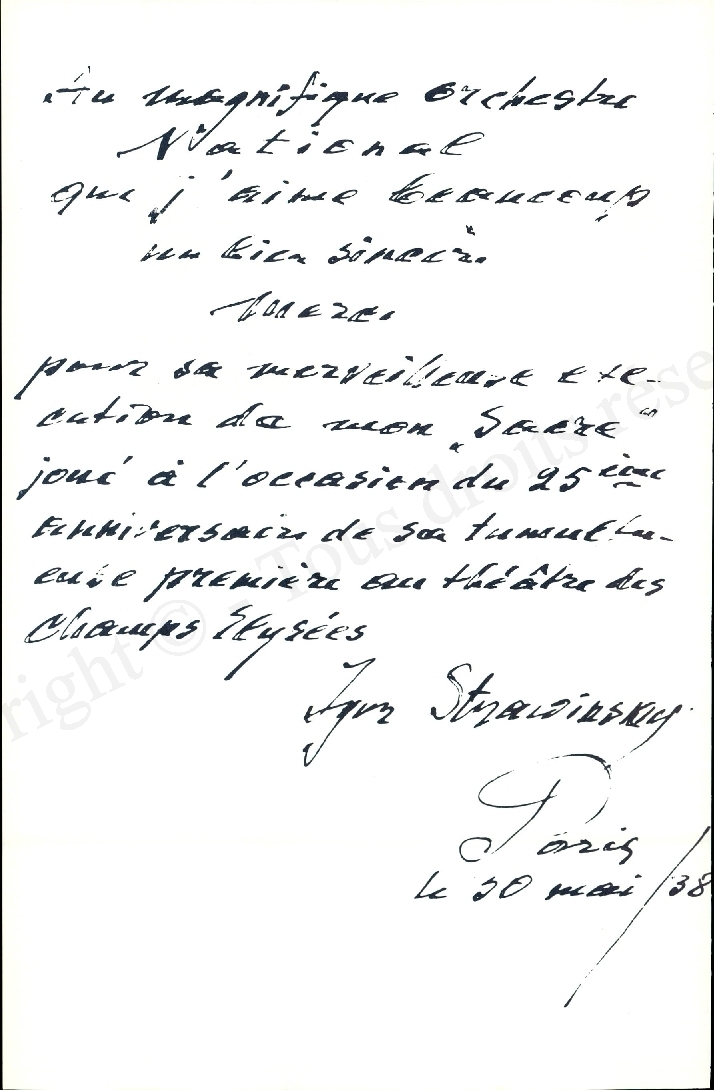 Au magnifique Orchestre
National
que j'aime beaucoup
un bien sincère
Merci
pour sa merveilleuse exé-
cution de mon „Sacre"
joué à l'occasion du 25ième
anniversaire de sa tumultu-
euse première au théâtre des
Champs Elysées
Igor Strawinsky
Paris
le 30 mai/38
right © - Tous droits rése